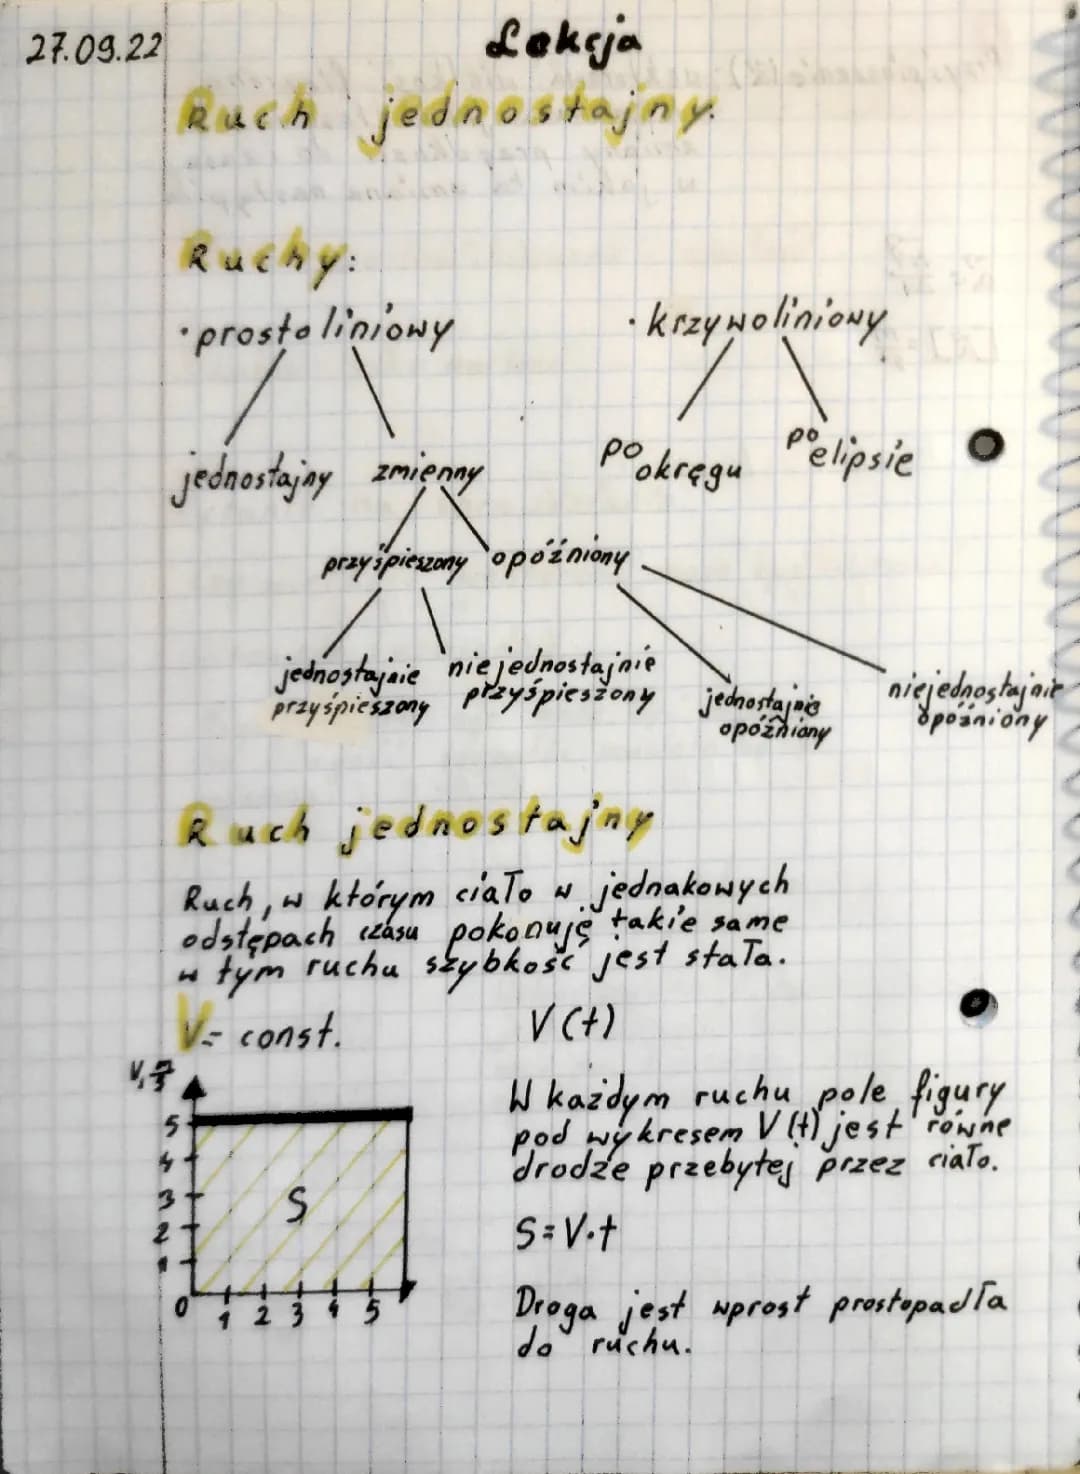 27.09.22
Lekcja
Ruch jednostajny.
Ruchy:
· prostoliniowy
· krzywoliniowy
jednostajny
zmienny
po okręgu
po elipsie
przyśpieszony
opóźniony
jednostajnie
przyśpieszony
niejednostajnie
przyśpieszony
jednostajnie
opóźniony
niejednostajnie
opóźniony
Ruch jednostajny
Ruch, w którym ciało w jednakowych
odstępach czasu pokonuję takie same
w tym ruchu szybkość jest stała.
V= const.
V(t)
V, m/s
5
4
3
2
1
0
1 2 3 4 5
S
W każdym ruchu pole figury
pod wykresem V(t) jest równe
drodze przebytej przez ciało.
S=V·t
Droga jest wprost prostopadła
do ruchu.